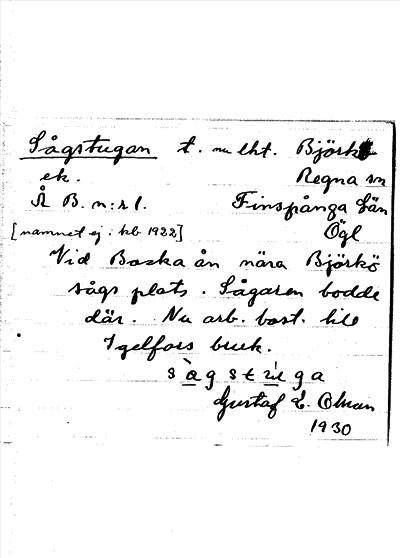 Sågstugan t. nu lht. Björkö
ek. Regna sn
Å B. n:r 1. Finspånga län
[namnet ej i kb 1922] Ögl
Vid Baska ån nära Björkö
sågs plats. Sågaren bodde
där. Nu arb. bost. till
Igelfors bruk.
sàgstúga
Gustaf E. Ohman
1930